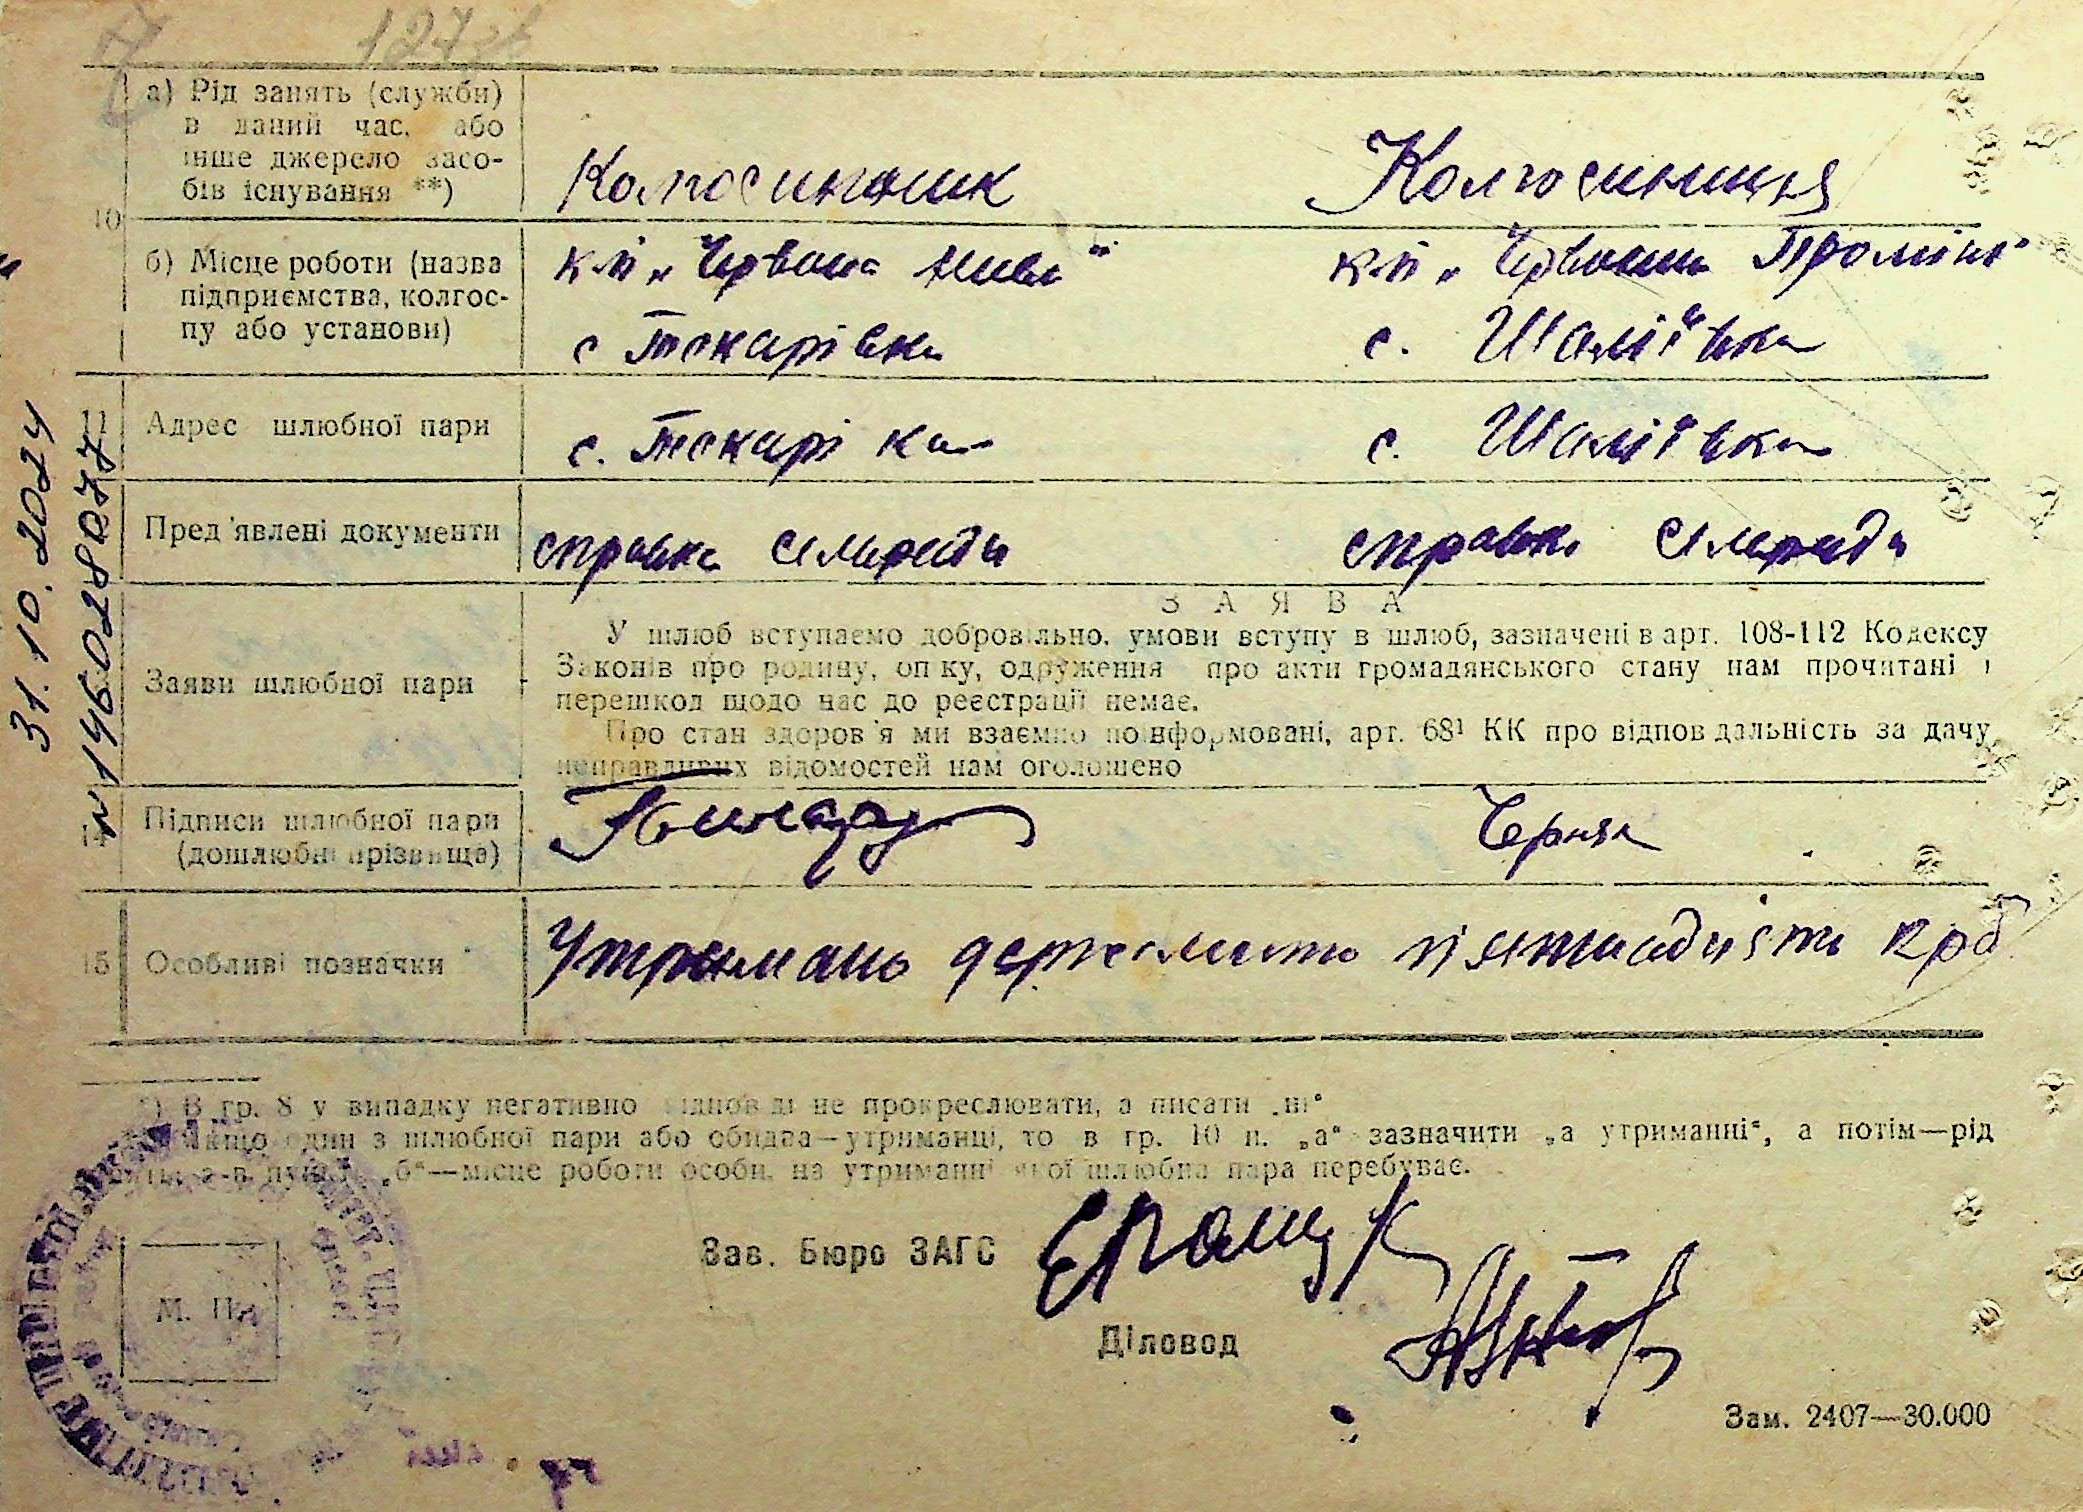 127зв
а) Рід занять (служби)
в даний час, або
інше джерело засо-
бів існування **)
Колгоспник
Колгоспниця
10
б) Місце роботи (назва
підприємства, колгос-
пу або установи)
к-п „Червона Нива"
с Токарівка
к-п „Червоний Промінь"
с. Шаліївка
11
Адрес шлюбної пари
с. Токарі ка
с. Шаліївка
Пред'явлені документи
справка сільради
справка сільради
Заяви шлюбної пари
ЗАЯВА
У шлюб вступаємо добровільно, умови вступу в шлюб, зазначені в арт. 108-112 Кодексу
Законів про родину, оп ку, одруження про акти громадянського стану нам прочитані і
перешкод щодо нас до реєстрації немає.
Про стан здоров'я ми взаємно поінформовані, арт. 68¹ КК про відпов дальність за дачу
неправдивих відомостей нам оголошено
14
Підписи шлюбної пари
(дошлюбні прізвища)
Черняк
15
Особливі позначки
Утримань держмито п'ятнадцять крб
*) В гр. 8 у випадку негативно відповіді не прокреслювати, а писати „ні"
якщо один з шлюбної пари або обидва—утриманці, то в гр. 10 п. „а" зазначити „а утриманні", а потім—рід
а в пункті „б"—місце роботи особи, на утриманні якої шлюбна пара перебуває.
Зав. Бюро ЗАГС
Єрощук
Діловод
М. П.
Зам. 2407—30.000
31.10.2024
N 146028077